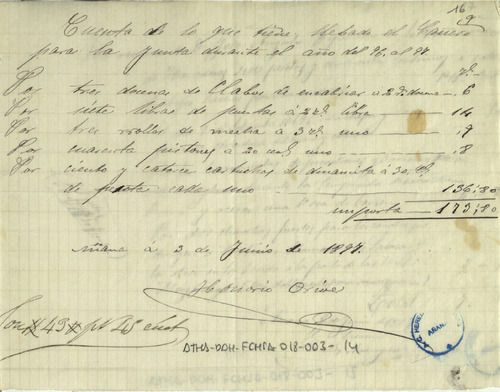 16
9
Cuenta de lo que tiene llebado el
para la Junta durante el año del 96 al 97.
Por tres docenas de Clabos de enralizar á 2 r. docena 6
Por siete libras de puntas á 2 rs. libra 14
Por tres rrollos de mecha á 3 rs. uno 9
Por cuarenta pistones á 20 uno 8
Por ciento y catorce cartuchos de dinamita á 30
de cada uno 136,80
importa 173,80
á 3 de Junio de 1897.
Honorio Orive
Son 43 pt 45 cts
ATHA-DAH-FCHPA-018-003-14